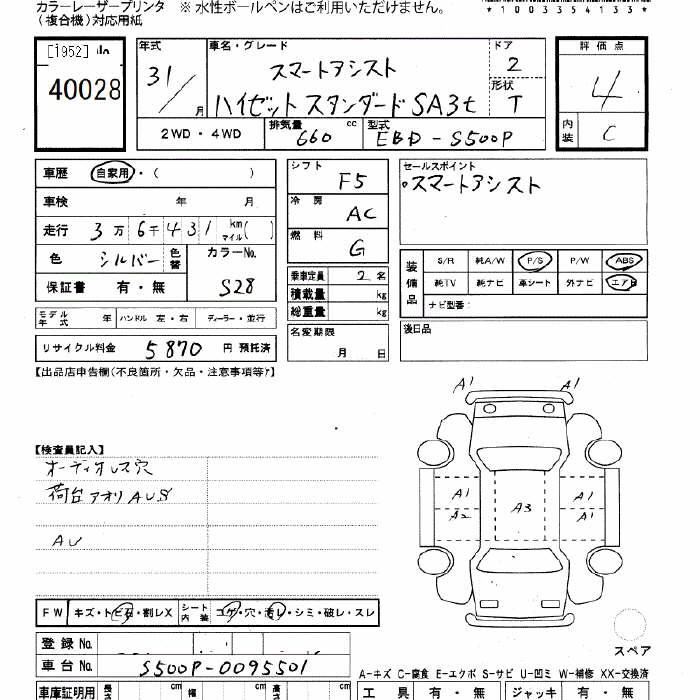 カラーレーザープリンタ ※ 水性ボールペンはご利用いただけません。
(複合機)対応用紙
*1003354133*
[1952]
40028
年式
31/
月
車名・グレード
スマートアシスト
ハイゼット スタンダード SA3t
ドア
2
形状
T
評価点
4
内装
C
2WD・4WD
排気量
660 cc
型式
EBD-S500P
車歴 自家用・( )
車検 年 月
走行 3万6千431 km マイル( )
色 シルバー 色替
カラーNo.
S28
保証書 有・無
シフト
F5
冷房
AC
燃料
G
乗車定員 2名
積載量 kg
総重量 kg
名変期限
月 日
セールスポイント
・スマートアシスト
装備品
S/R 純A/W P/S P/W ABS
純TV 純ナビ 革シート 外ナビ エアB
ナビ型番:
後日品
モデル年式 年 ハンドル 左・右 ディーラー・並行
リサイクル料金 5870 円 預託済
【出品店申告欄(不良箇所・欠品・注意事項等)】
【検査員記入】
オーディオレス穴
荷台アオリAUS
AU
A1
A1
A1
A2
A3
A1
A1
スペア
FW キズ・トビ石・割レX シート内装 コゲ・穴・汚レ・シミ・破レ・スレ
登録No.
車台No. S500P-0095501
A-キズ C-腐食 E-エクボ S-サビ U-凹ミ W-補修 XX-交換済
車庫証明用 長さ cm 幅 cm 高さ cm
工具 有・無 ジャッキ 有・無